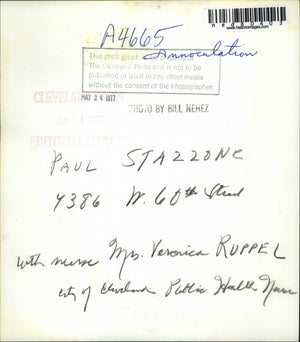 A4665
Annoculation
This photograph is the property of
The Cleveland Press and is not to be
published or used in any other media
without the consent of the Photographer.
CLEVELAND PRESS
MAY 24 1977
PHOTO BY BILL NEHEZ
1977
EDITORIAL LIBRARY
PAUL STAZZONE
4386 W. 60th Street
with nurse Mrs. Veronica RUPPEL
city of Cleveland Public Health Nurse